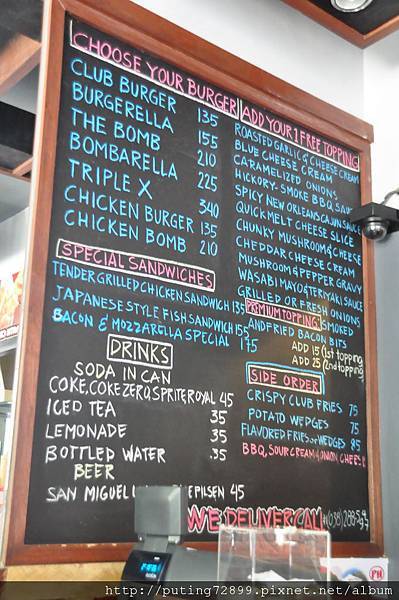 CHOOSE YOUR BURGER
CLUB BURGER 135
BURGERELLA 155
THE BOMB 210
BOMBARELLA 225
TRIPLE X 340
CHICKEN BURGER 135
CHICKEN BOMB 210
SPECIAL SANDWICHES
TENDER GRILLED CHICKEN SANDWICH 135
JAPANESE STYLE FISH SANDWICH 155
BACON & MOZZARELLA SPECIAL 175
DRINKS
SODA IN CAN
COKE, COKE ZERO, SPRITE, ROYAL 45
ICED TEA 35
LEMONADE 35
BOTTLED WATER .35
BEER
SAN MIGUEL PILSEN 45
ADD YOUR 1 FREE TOPPING
ROASTED GARLIC & CHEESE CREAM
BLUE CHEESE CREAM
CARAMELIZED ONIONS
HICKORY-SMOKE BBQ SAUCE
SPICY NEW ORLEANS CAJUN SAUCE
QUICKMELT CHEESE SLICE
CHUNKY MUSHROOM & CHEESE
CHEDDAR CHEESE CREAM
MUSHROOM & PEPPER GRAVY
WASABI MAYO & TERIYAKI SAUCE
GRILLED OR FRESH ONIONS
PREMIUM TOPPING: SMOKED
AND FRIED BACON BITS
ADD 15 (1st topping
ADD 25 (2nd topping
SIDE ORDER
CRISPY CLUB FRIES 75
POTATO WEDGES 75
FLAVORED FRIES or WEDGES 85
BBQ, SOUR CREAM & ONION, CHEESE
WE DELIVER CALL
http://puting72899.pixnet.net/album